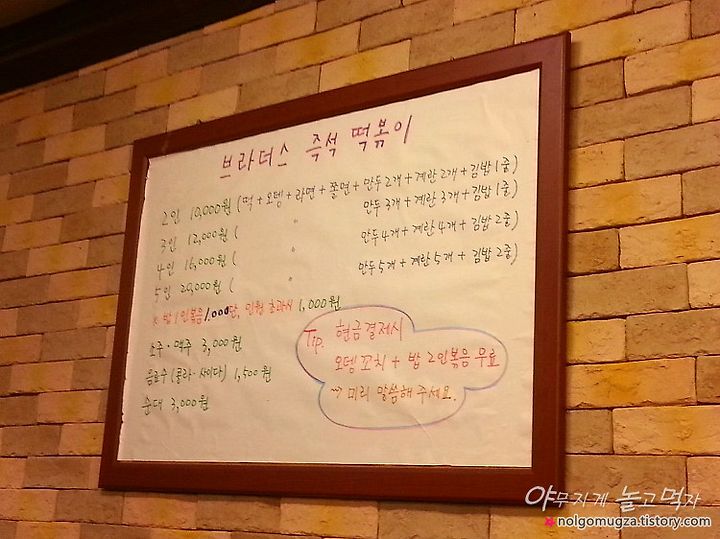 브라더스 즉석 떡볶이
2인 10,000원 (떡 + 오뎅 + 라면 + 쫄면 + 만두 2개 + 계란 2개 + 김밥 1줄)
3인 12,000원 ( " 만두 3개 + 계란 3개 + 김밥 1줄)
4인 16,000원 ( " 만두 4개 + 계란 4개 + 김밥 2줄)
5인 20,000원 ( " 만두 5개 + 계란 5개 + 김밥 2줄)
* 밥 1인볶음 1,000 단, 인원 초과시 1,000원
소주 · 맥주 3,000원
음료수 (콜라 · 사이다) 1,500원
순대 3,000원
Tip. 현금결제시
오뎅꼬치 + 밥 2인볶음 무료
→ 미리 말씀해 주세요.
야무지게 놀고먹자
nolgomugza.tistory.com